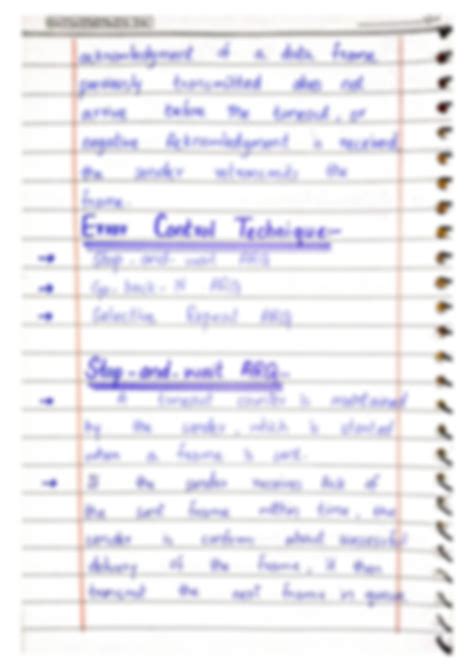 acknowledgment of a data frame
previously transmitted does not
arrive before the timeout, or
negative Acknowledgment is received
the sender retransmits the
frame.
Error Control Technique:-
→ Stop-and-wait ARQ
→ Go-back-N ARQ
→ Selective Repeat ARQ
Stop-and-wait ARQ:-
→ A timeout counter is maintained
by the sender, which is started
when a frame is sent.
→ If the sender receives Ack of
the sent frame within time, the
sender is confirm about successful
delivery of the frame, it then
transmit the next frame in queue